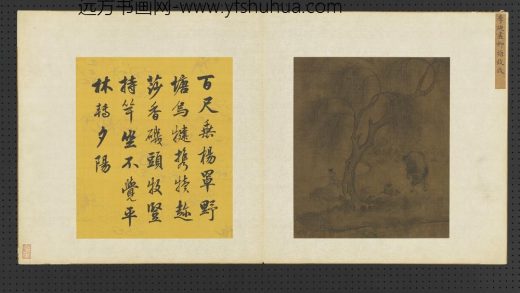 远方书画网-www.yfshuhua.com
百尺垂楊罩野
塘烏犍携犢趂
莎香磯頭牧豎
持竿坐不覺平
林轉夕陽